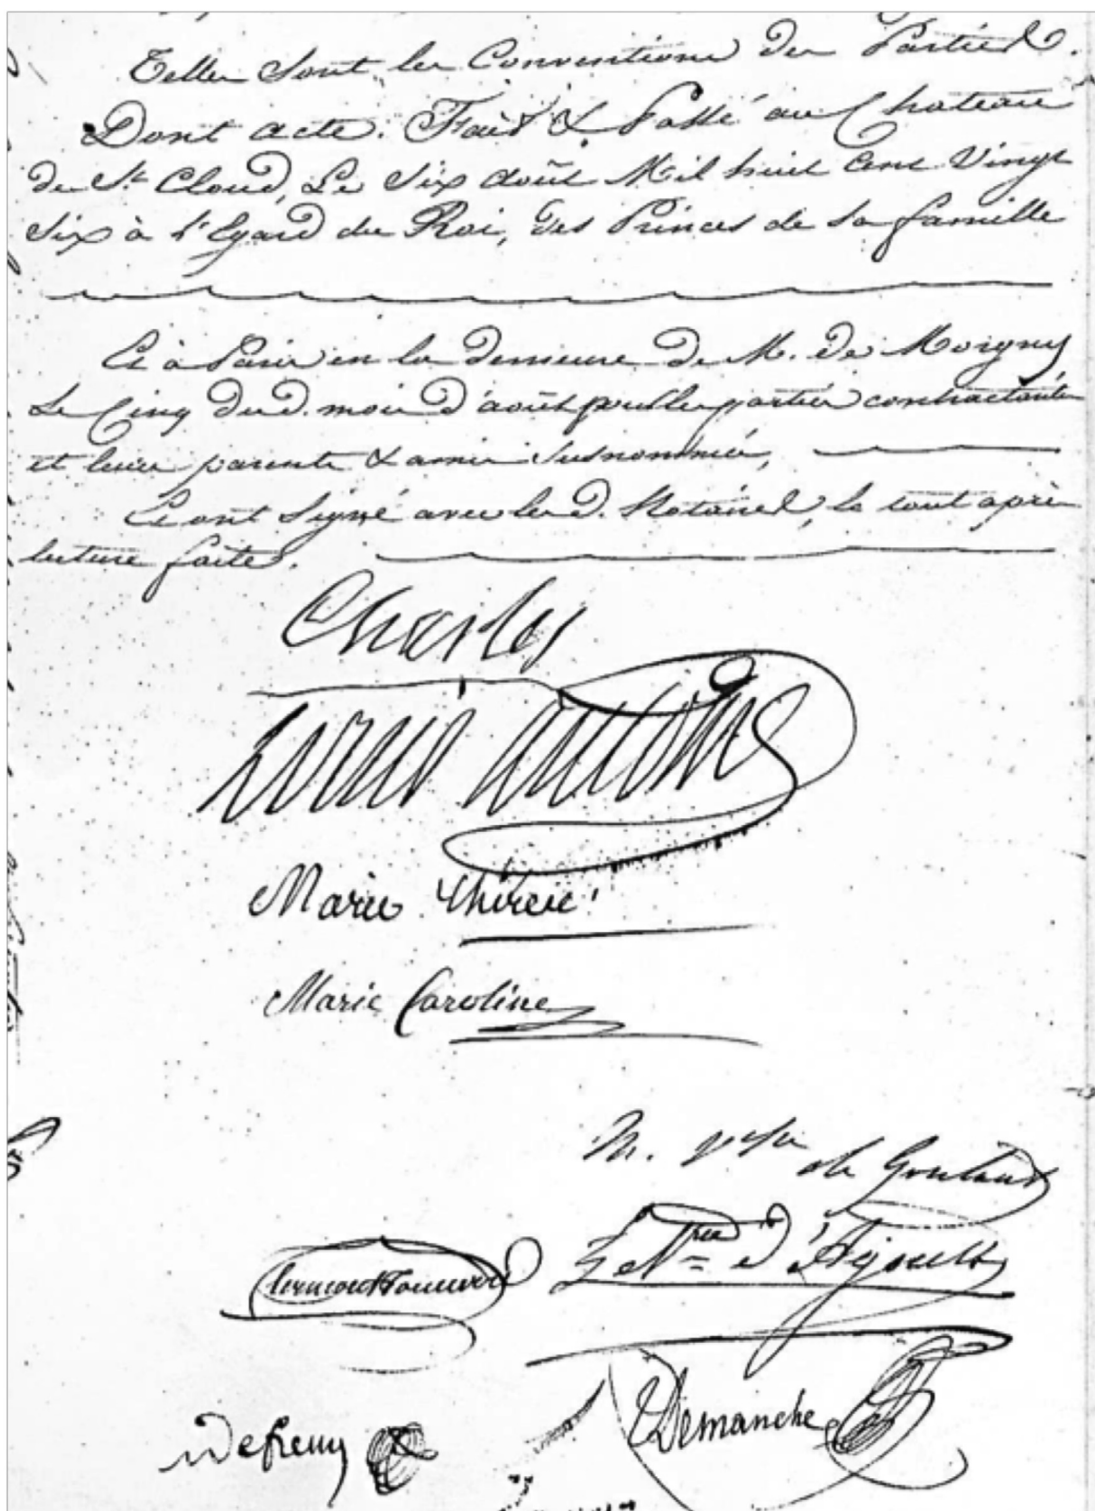 Telles sont les Conventions des Parties.
Dont acte. Fait & Passé au Chateau
de St. Cloud, Le Six août Mil huit Cent Vingt
Six à l'Egard du Roi, des Princes de Sa famille
Et à Paris en la demeure de M. de Morgny
Le Cinq dud. mois d'août pour les parties contractantes
et leurs parents & amis susnommés,
Et ont Signé avec les d. Notaires, le tout après
lecture faite.
Charles
Louis antoine
Marie Thérese
Marie Caroline
M. Vtsse de Gontaut
d'Agoult
Clermont Tonnerre
Defresny
Demanche